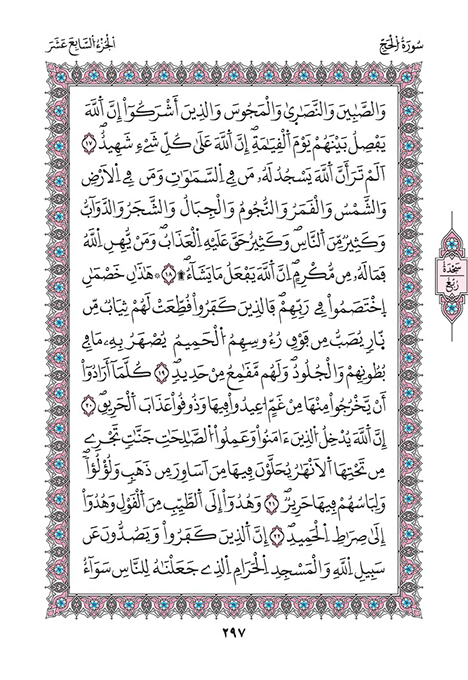 سُورَةُ الْحَجِّ
الْجُزْءُ السَّابِعَ عَشَرَ
وَالصَّٰبِينَ وَالنَّصَٰرِىٰ وَالْمَجُوسَ وَالذِينَ أَشْرَكُوٓاْ إِنَّ اَللَّهَ
يَفْصِلُ بَيْنَهُمْ يَوْمَ اَلْقِيَٰمَةِۖ إِنَّ اَللَّهَ عَلَىٰ كُلِّ شَےْءٖ شَهِيدٌۖ ١٧
اَلَمْ تَرَ أَنَّ اَللَّهَ يَسْجُدُ لَهُۥ مَن فِے اِلسَّمَٰوَٰتِ وَمَن فِے اِلَارْضِ
وَالشَّمْسُ وَالْقَمَرُ وَالنُّجُومُ وَالْجِبَالُ وَالشَّجَرُ وَالدَّوَآبُّ
وَكَثِيرٞ مِّنَ اَلنَّاسِۖ وَكَثِيرٌ حَقَّ عَلَيْهِ اِلْعَذَابُۖ وَمَنْ يُّهِنِ اِللَّهُ
فَمَا لَهُۥ مِن مُّكْرِمٍۖ اِنَّ اَللَّهَ يَفْعَلُ مَا يَشَآءُۖ۩ ١٨ ۞هَٰذَٰنِ خَصْمَٰنِ
اِخْتَصَمُواْ فِے رَبِّهِمْۖ فَالذِينَ كَفَرُواْ قُطِّعَتْ لَهُمْ ثِيَابٞ مِّن
نّ۪ارٖ يُصَبُّ مِن فَوْقِ رُءُوسِهِمُ اُلْحَمِيمُ يُصْهَرُ بِهِۦ مَا فِے
بُطُونِهِمْ وَالْجُلُودُۖ وَلَهُم مَّقَٰمِعُ مِنْ حَدِيدٖۖ ١٩ كُلَّمَآ أَرَادُوٓاْ
أَنْ يَّخْرُجُواْ مِنْهَا مِنْ غَمٍّ ا۟عِيدُواْ فِيهَا وَذُوقُواْ عَذَابَ اَلْحَرِيقِۖ ٢٠
إِنَّ اَللَّهَ يُدْخِلُ اُلذِينَ ءَامَنُواْ وَعَمِلُواْ اُلصَّٰلِحَٰتِ جَنَّٰتٖ تَجْرِے
مِن تَحْتِهَا اَلَانْهَٰرُ يُحَلَّوْنَ فِيهَا مِنَ اَسَاوِرَ مِن ذَهَبٖ وَلُؤْلُؤاٗۖ
وَلِبَاسُهُمْ فِيهَا حَرِيرٞۖ ٢١ وَهُدُوٓاْ إِلَى اَلطَّيِّبِ مِنَ اَلْقَوْلِ وَهُدُوٓاْ
إِلَىٰ صِرَٰطِ اِلْحَمِيدِۖ ٢٢ إِنَّ اَلذِينَ كَفَرُواْ وَيَصُدُّونَ عَن
سَبِيلِ اِللَّهِ وَالْمَسْجِدِ اِلْحَرَامِ اِلذِے جَعَلْنَٰهُ لِلنَّاسِ سَوَآءٌ
سَجْدَة
رُبُع
٢٩٧